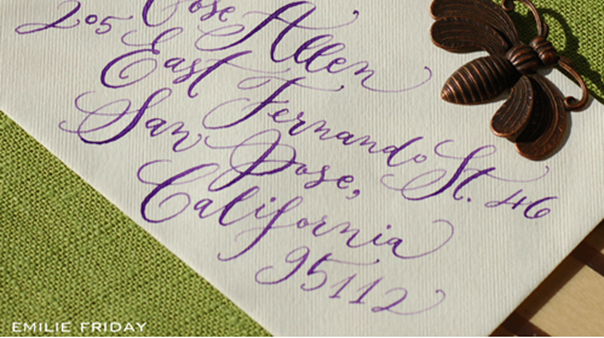 Allen
205 East Fernando St. 46
San Jose,
California
95112
EMILIE FRIDAY